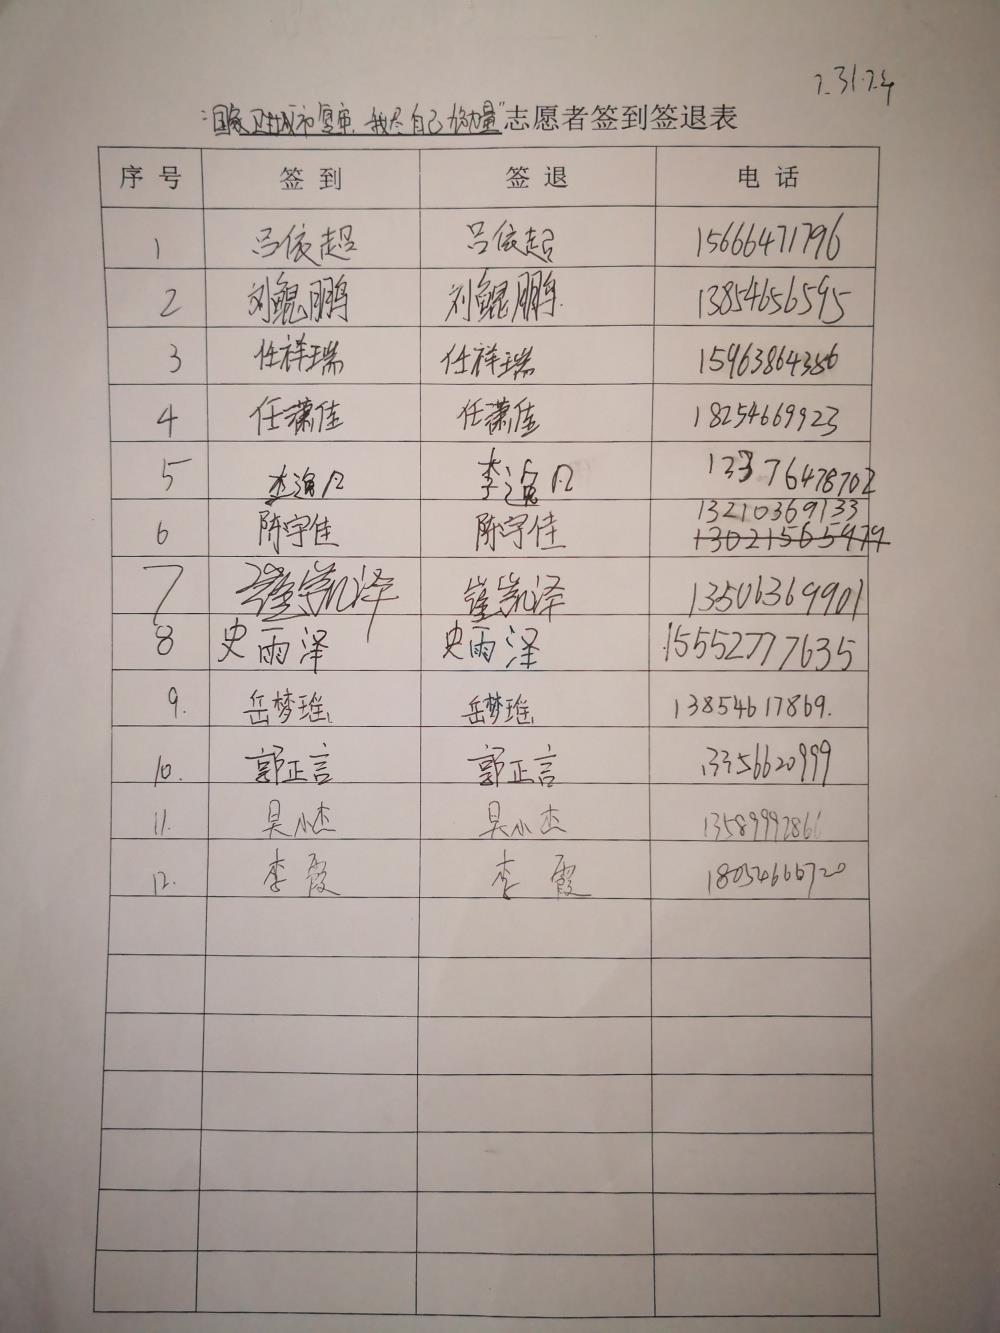 7.31.下午
"国家卫生城市复审，我尽自己的力量"志愿者签到签退表
序号 签到 签退 电话
1 吕依超 吕依超 15666471796
2 刘鲲鹏 刘鲲鹏 13854656595
3 任祥瑞 任祥瑞 15963864386
4 任潇佳 任潇佳 18254669923
5 李逸凡 李逸凡 13376478702
6 陈宇佳 陈宇佳 13210369133
13021565979
7 崔凯泽 13506369901
8 史雨泽 史雨泽 15552777635
9. 岳梦瑶 岳梦瑶 13854617869.
10. 郭正言 郭正言 13356620999
11. 吴小杰 吴小杰 13589992866
12. 李霞 李霞 18054666720